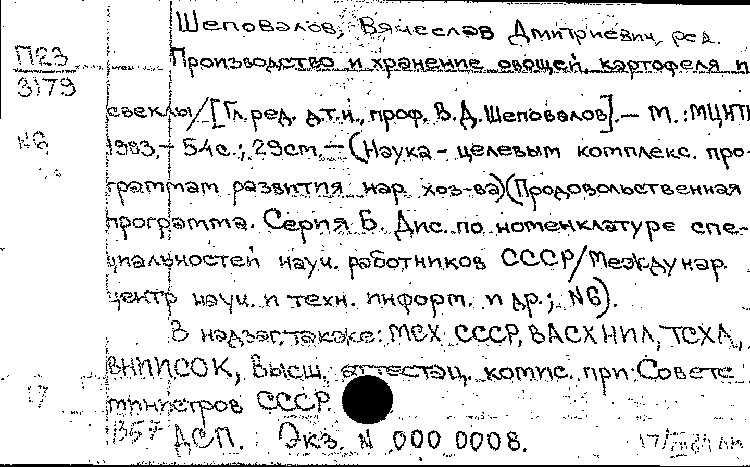 Шеповалов, Вячеслав Дмитриевич, ред.
П23
3179
Производство и хранение овощей, картофеля и
свеклы/[Гл. ред. д.т.н., проф. В.Д. Шеповалов].— М.: МЦНТИ
№6
1983.— 54с.; 29см.— (Наука - целевым комплекс. про-
граммам развития нар. хоз-ва)(Продовольственная
программа. Серия Б. Дис. по номенклатуре спе-
циальностей науч. работников СССР/Междунар.
центр науч. и техн. информ. и др.; №6).
В надзаг. также: МСХ СССР, ВАСХНИЛ, ТСХА,
ВНИИСОК, Высш. аттестац. комис. при Совете
17
министров СССР.
1357 ДСП. Экз. N 000 0008.